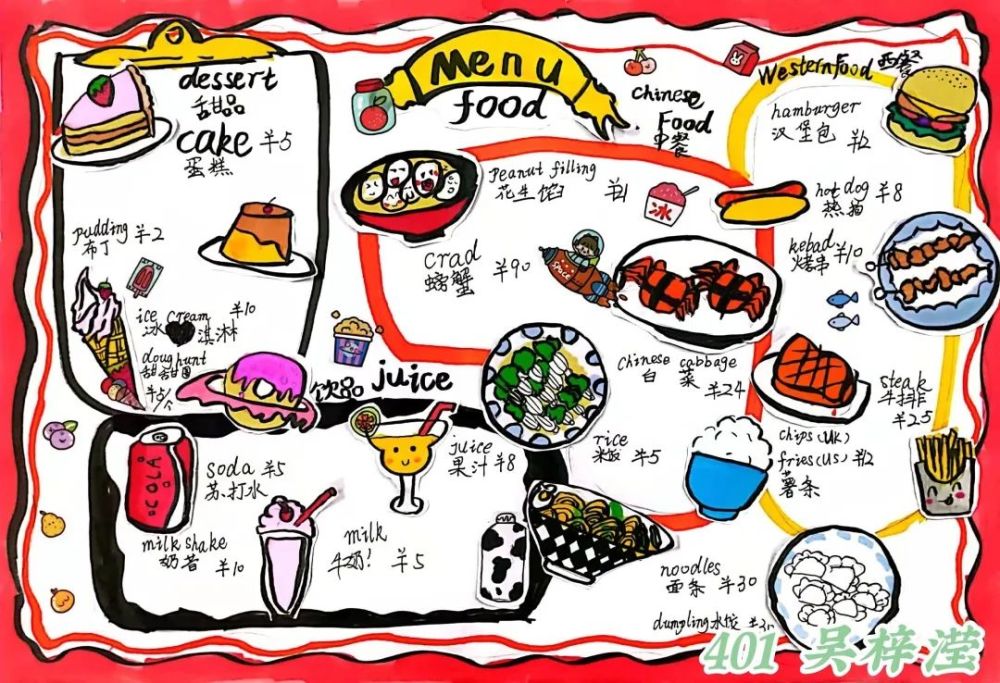 Menu
food
dessert
甜品
cake ¥5
蛋糕
pudding ¥2
布丁
ice cream ¥10
冰 淇淋
doughunt
甜甜圈
¥5/个
饮品 juice
soda ¥5
苏打水
COLA
juice
果汁 ¥8
milk shake
奶昔 ¥10
milk
牛奶! ¥5
chinese
Food
中餐
peanut filling
花生馅
冰
crad
螃蟹 ¥90
SPACE
chinese cabbage
白 菜 ¥24
rice
米饭 ¥5
noodles
面条 ¥30
dumpling 水饺
Western food 西餐
hamburger
汉堡包 ¥12
hot dog ¥8
热狗
kebad ¥10
烤串
steak
牛排
¥25
chips (UK)
fries (US) ¥12
薯条
401 吴梓滢